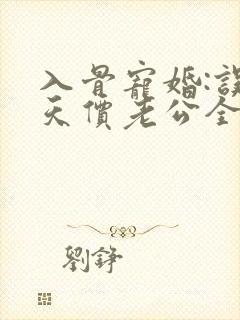 入骨寵婚:誤
天價老公全
劉錚